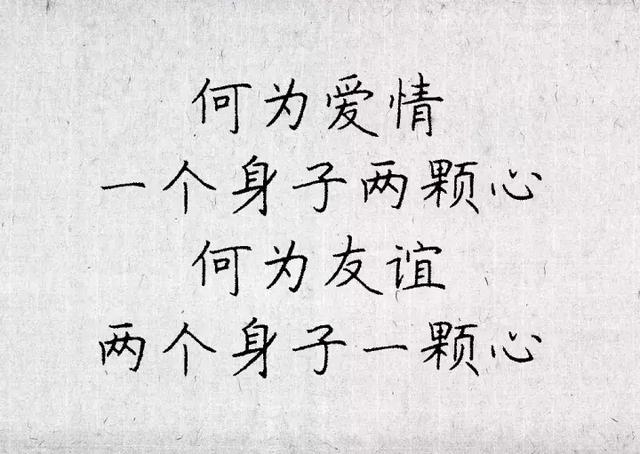 何为爱情
一个身子两颗心
何为友谊
两个身子一颗心